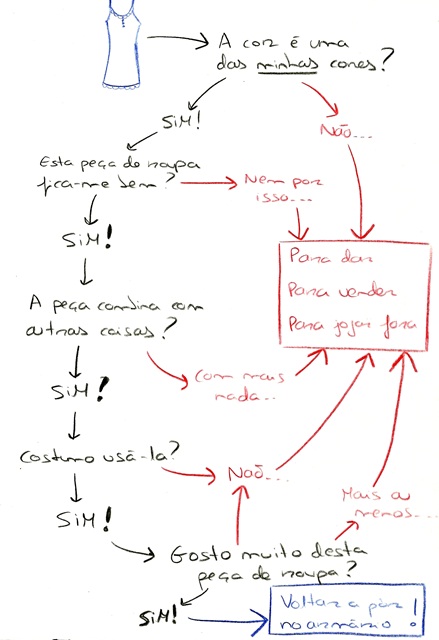 A cor é uma
das minhas cores?
SIM!
Não...
Esta peça de roupa
fica-me bem?
Nem por
isso...
SIM!
Para dar
Para vender
Para jogar fora
A peça combina com
outras coisas?
Com mais
nada...
SIM!
Costumo usá-la?
Naõ...
Mais ou
menos...
SIM!
Gosto muito desta
peça de roupa?
SIM!
Voltar a pôr
no armário!